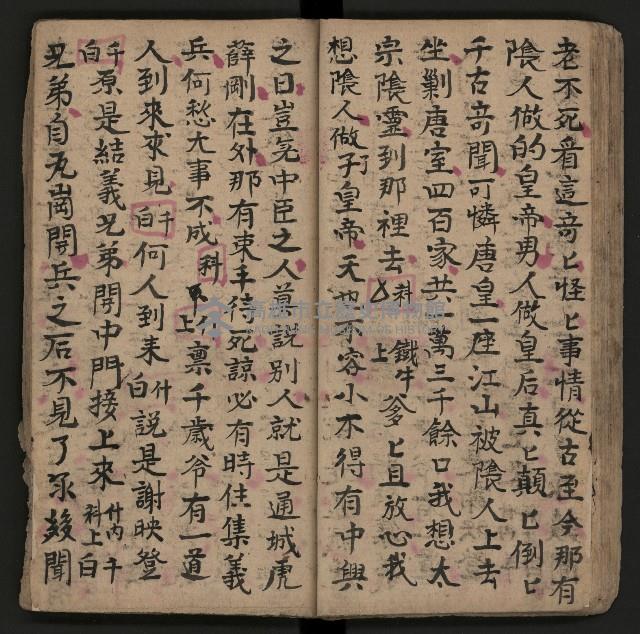 老不死看這奇匕怪匕事情從古至今那有
陰人做的皇帝男人做皇后真匕顛匕倒匕
千古奇聞可憐唐皇一座江山被陰人上去
坐剿唐室四百家共一萬三千餘口我想太
宗陰靈到那裡去 科 上 鐵牛爹匕且放心我
想陰人做了皇帝天 容小不得有中興
之日豈先中臣之人莫說別人就是通城虎
薛剛在外那有束手待死諒必有時住集義
兵何愁大事不成 科 上 禀千歲爷有一道
人到來求見 千白 何人到来 什白 說是謝映登
千白 原是結義兄弟開中門接上來 什內 科上 千白
兄弟自瓦崗開兵之后不見了 幾聞
高雄市立歷史博物館
KAOHSIUNG MUSEUM OF HISTORY